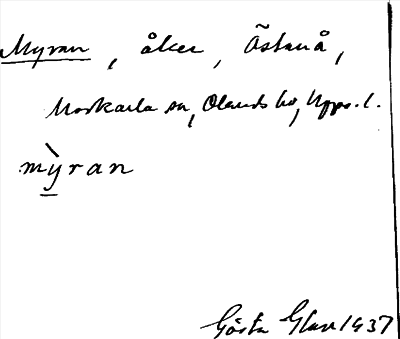 Myran, åker, Östanå,
Morkarla sn, Olands hd, Upps. l.
mỳran
Gösta Glan 1937